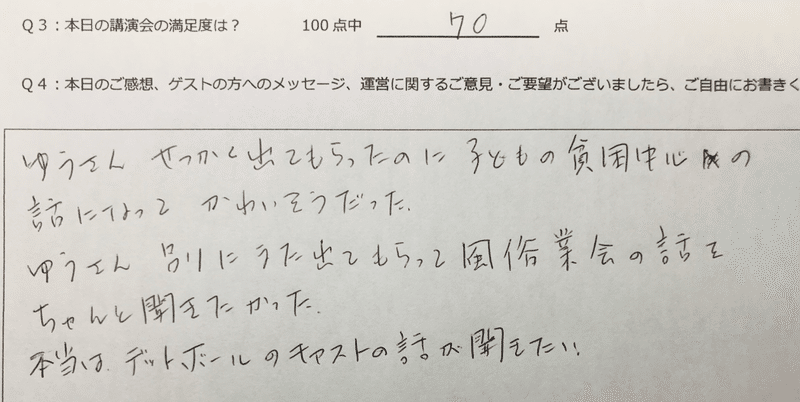 Q3：本日の講演会の満足度は？ 100点中 70 点
Q4：本日のご感想、ゲストの方へのメッセージ、運営に関するご意見・ご要望がございましたら、ご自由にお書きく
ゆうさん せっかく出てもらったのに 子どもの貧困中心の
話になって かわいそうだった.
ゆうさん 別に 出てもらって 風俗業会の話を
ちゃんと聞きたかった.
本当は、デットボールのキャストの話が聞きたい!